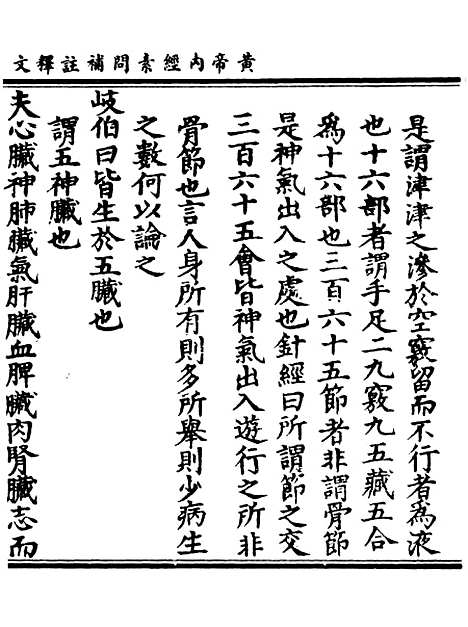 黄帝內經素問補註釋文
是謂津津之滲於空竅留而不行者為液
也十六部者謂手足二九竅九五藏五合
為十六部也三百六十五節者非謂骨節
是神氣出入之處也針經曰所謂節之交
三百六十五會皆神氣出入遊行之所非
骨節也言人身所有則多所舉則少病生
之數何以論之
岐伯曰皆生於五臟也
謂五神臟也
夫心臟神肺臟氣肝臟血脾臟肉腎臟志而